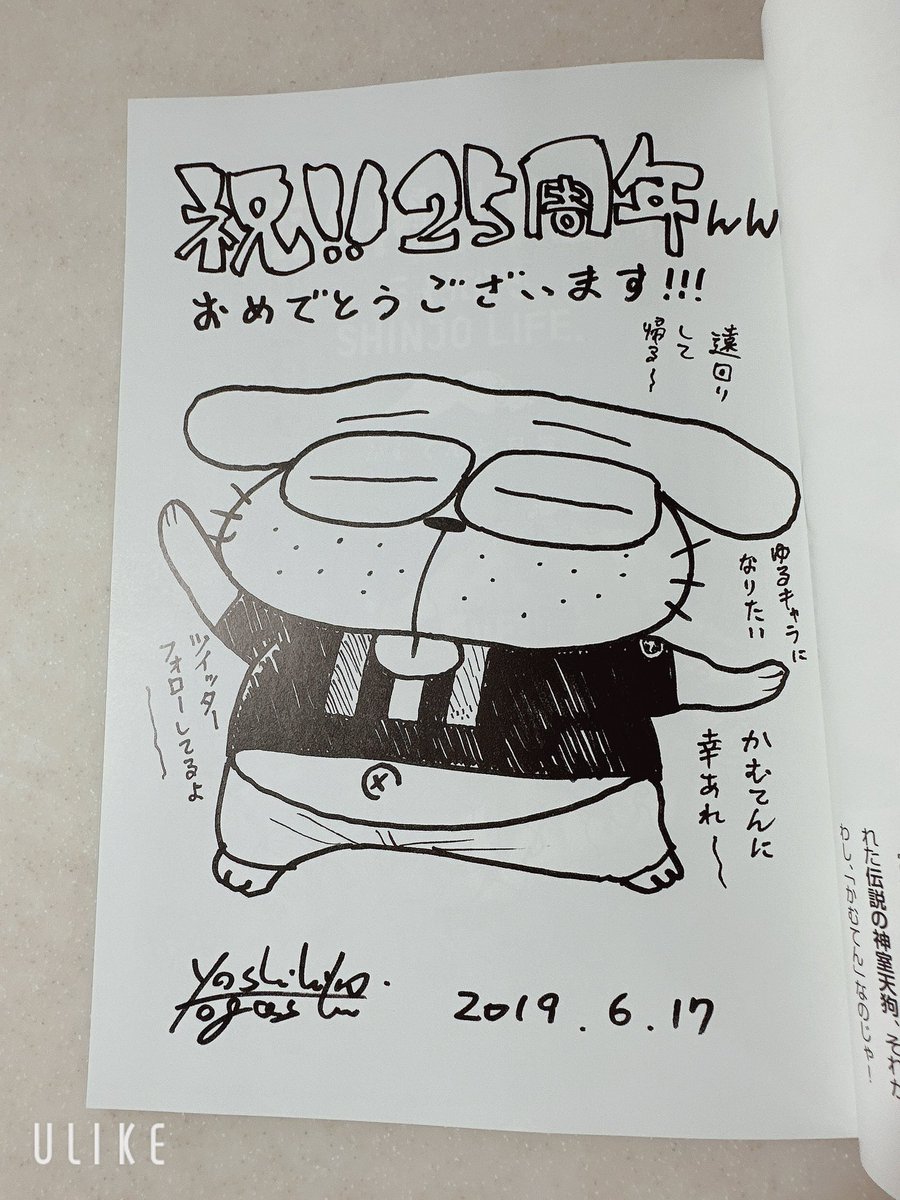 祝!!25周年んん
おめでとうございます!!!
遠回り
して
帰る〜
ゆるキャラに
なりたい
ツイッター
フォローしてるよ
かむてんに
幸あれ〜
2019.6.17
れた伝説の神室天狗、それが
わし、「かむてん」なのじゃー
SHINJO LIFE
ULIKE